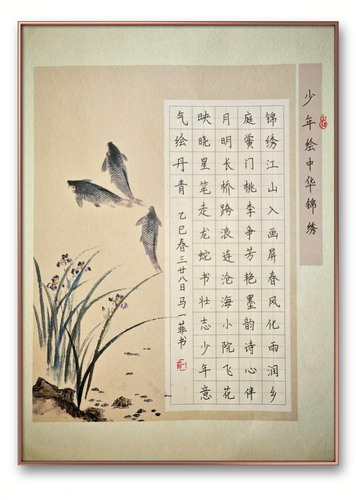 少年绘中华锦绣
锦绣江山入画屏春风化雨润乡
庭黉门桃李争芳艳墨韵诗心伴
月明长桥跨浪连沧海小院飞花
映晓星笔走龙蛇书壮志少年意
气绘丹青 乙巳春三廿八日马一菲书